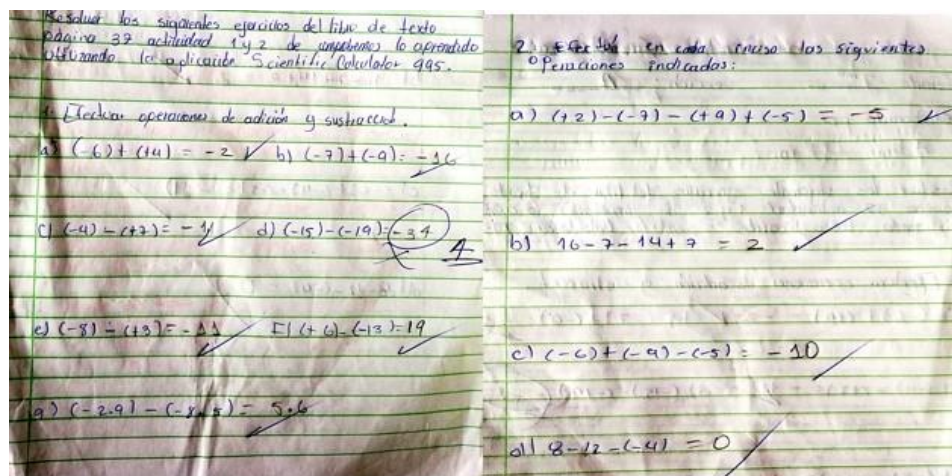 Resolver los siguientes ejercicios del libro de texto
página 37 actividad 1 y 2 de comprobemos lo aprendido
utilizando la aplicación Scientific Calculator 995.
1. Efectuar operaciones de adición y sustracción.
a) (-6) + (+4) = -2 b) (-7) + (-9) = -16
c) (-4) - (+7) = -11 d) (-15) - (-19) = -34
4
e) (-8) - (+3) = -11 F) (+6) - (-13) = 19
g) (-2.9) - (-8.5) = 5.6
2. Efectúa en cada inciso las siguientes
operaciones indicadas:
a) (+2) - (-7) - (+9) + (-5) = -5
b) 16 - 7 - 14 + 7 = 2
c) (-6) + (-9) - (-5) = -10
d) 8 - 12 - (-4) = 0